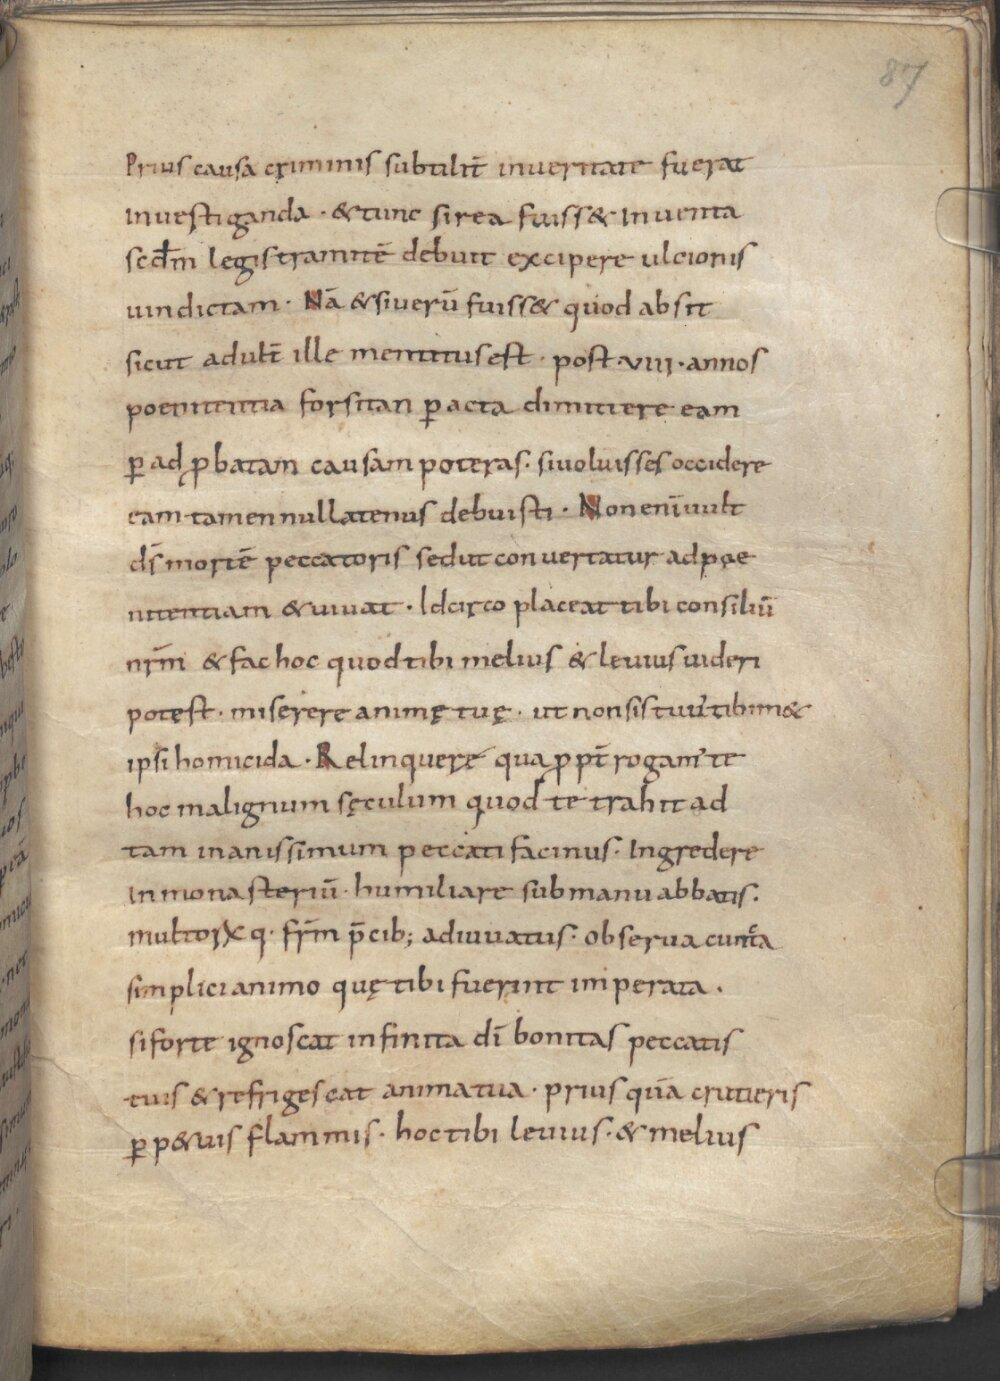 87
Prius causa criminis subtilit̄ inveritate fuerat
Investiganda · &tunc sirea fuiss& Inventa
scd̄m legistramitē debuit excipere ulcionis
uindictam · Nā &siuerū fuiss& quod absit
sicut adult̄ ille mentitusest · post ·viii· annos
poenitentia forsitan ꝑacta dimittere eam
ꝑ adꝓbatam causam poteras · sivoluisses occidere
eam tamen nullatenus debuisti · Non enī uult
dī mortē peccatoris sedut convertatur adpoe
nitentiam &vivat · Idcirco placeat tibi consiliū
nrm̄ &fac hoc quodtibi melius &leuius uideri
potest · miserere animę tuę · ut nonsis tuiı̓ tibim&
ipsi homicida · Relinquere qua ꝓpt̄ rogam̓ te
hoc malignum sęculum quod te trahit ad
tam inanissimum peccati facinus · Ingredere
In monasteriū · humiliare submanu abbatis ·
multoꝝ q · frm̄ p̄cib; adiuuatus · observa cuncta
simplici animo quę tibi fuerint imperata ·
siforte ignoscat infinita dī bonitas peccatis
tuis &refrigescat anima tua · prius quā crucieris
ꝑp&uis flammis · hoctibi leuius · &melius